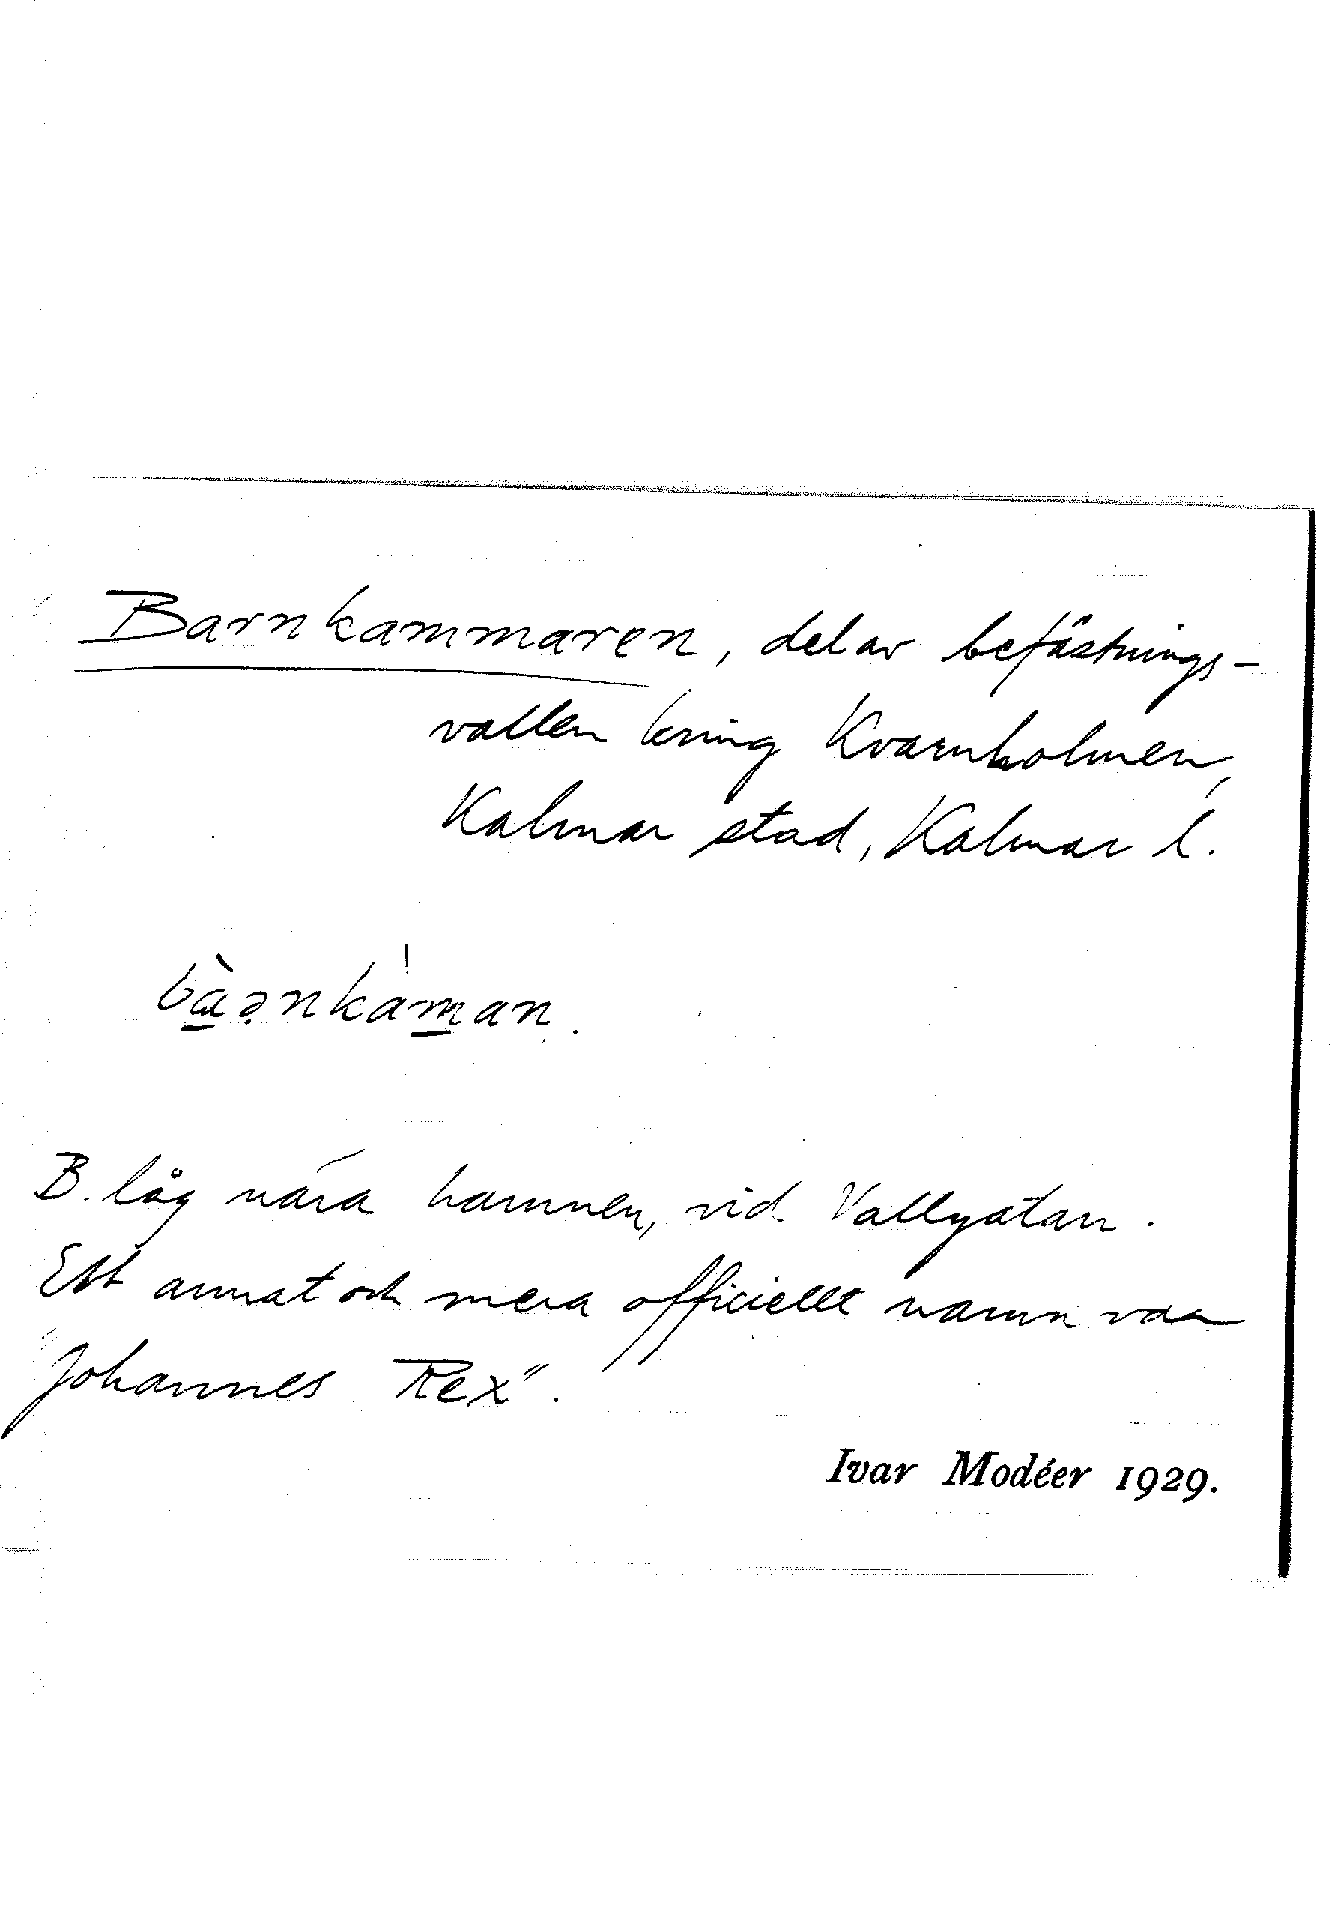 Barnkammaren, del av befästnings-
vallen kring Kvarnholmen,
Kalmar stad, Kalmar l.
bàənkàman.
B. låg nära hamnen, vid Vallgatan.
Ett annat och mera officiellt namn var
Johannes Rex".
Ivar Modéer 1929.